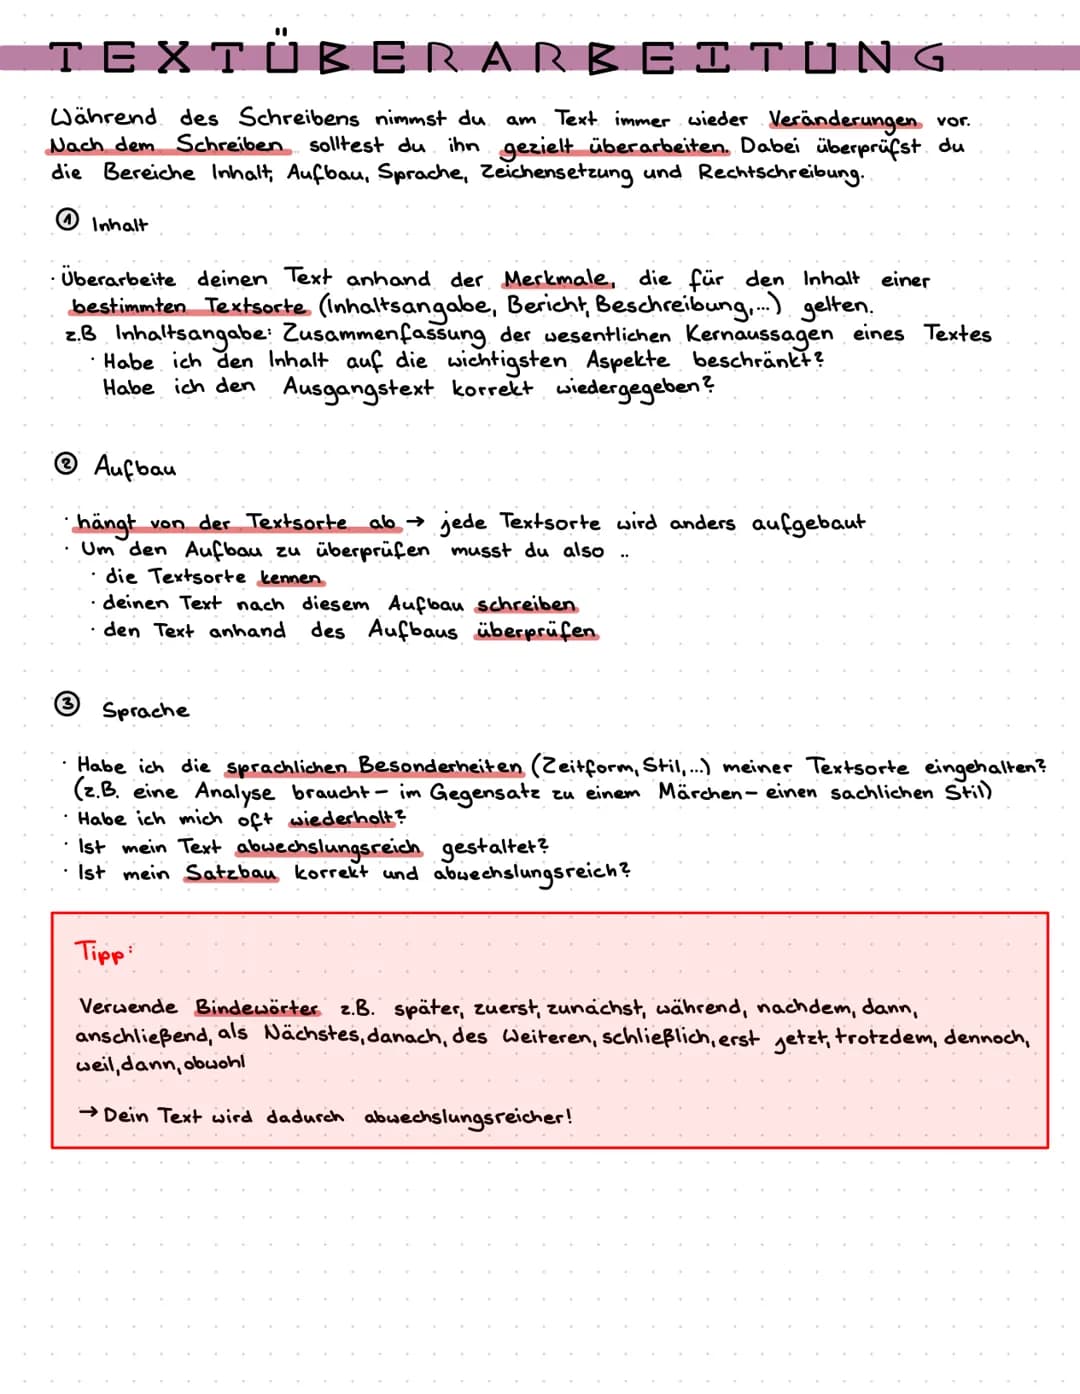 TEXTÜBERARBEITUNG
Während des Schreibens nimmst du am Text immer wieder Veränderungen vor.
Nach dem Schreiben solltest du ihn gezielt überarbeiten. Dabei überprüfst du
die Bereiche Inhalt, Aufbau, Sprache, Zeichensetzung und Rechtschreibung.
① Inhalt
· Überarbeite deinen Text anhand der Merkmale, die für den Inhalt einer
bestimmten Textsorte (Inhaltsangabe, Bericht, Beschreibung,...) gelten.
z.B Inhaltsangabe: Zusammenfassung der wesentlichen Kernaussagen eines Textes
· Habe ich den Inhalt auf die wichtigsten Aspekte beschränkt?
Habe ich den Ausgangstext korrekt wiedergegeben?
② Aufbau
· hängt von der Textsorte ab → jede Textsorte wird anders aufgebaut
· Um den Aufbau zu überprüfen musst du also ..
· die Textsorte kennen
· deinen Text nach diesem Aufbau schreiben
· den Text anhand des Aufbaus überprüfen
③ Sprache
· Habe ich die sprachlichen Besonderheiten (Zeitform, Stil,...) meiner Textsorte eingehalten?
(z.B. eine Analyse braucht – im Gegensatz zu einem Märchen – einen sachlichen Stil)
· Habe ich mich oft wiederholt?
· Ist mein Text abwechslungsreich gestaltet?
· Ist mein Satzbau korrekt und abwechslungsreich?
Tipp:
Verwende Bindewörter z.B. später, zuerst, zunächst, während, nachdem, dann,
anschließend, als Nächstes, danach, des Weiteren, schließlich, erst jetzt, trotzdem, dennoch,
weil, dann, obwohl
→ Dein Text wird dadurch abwechslungsreicher!